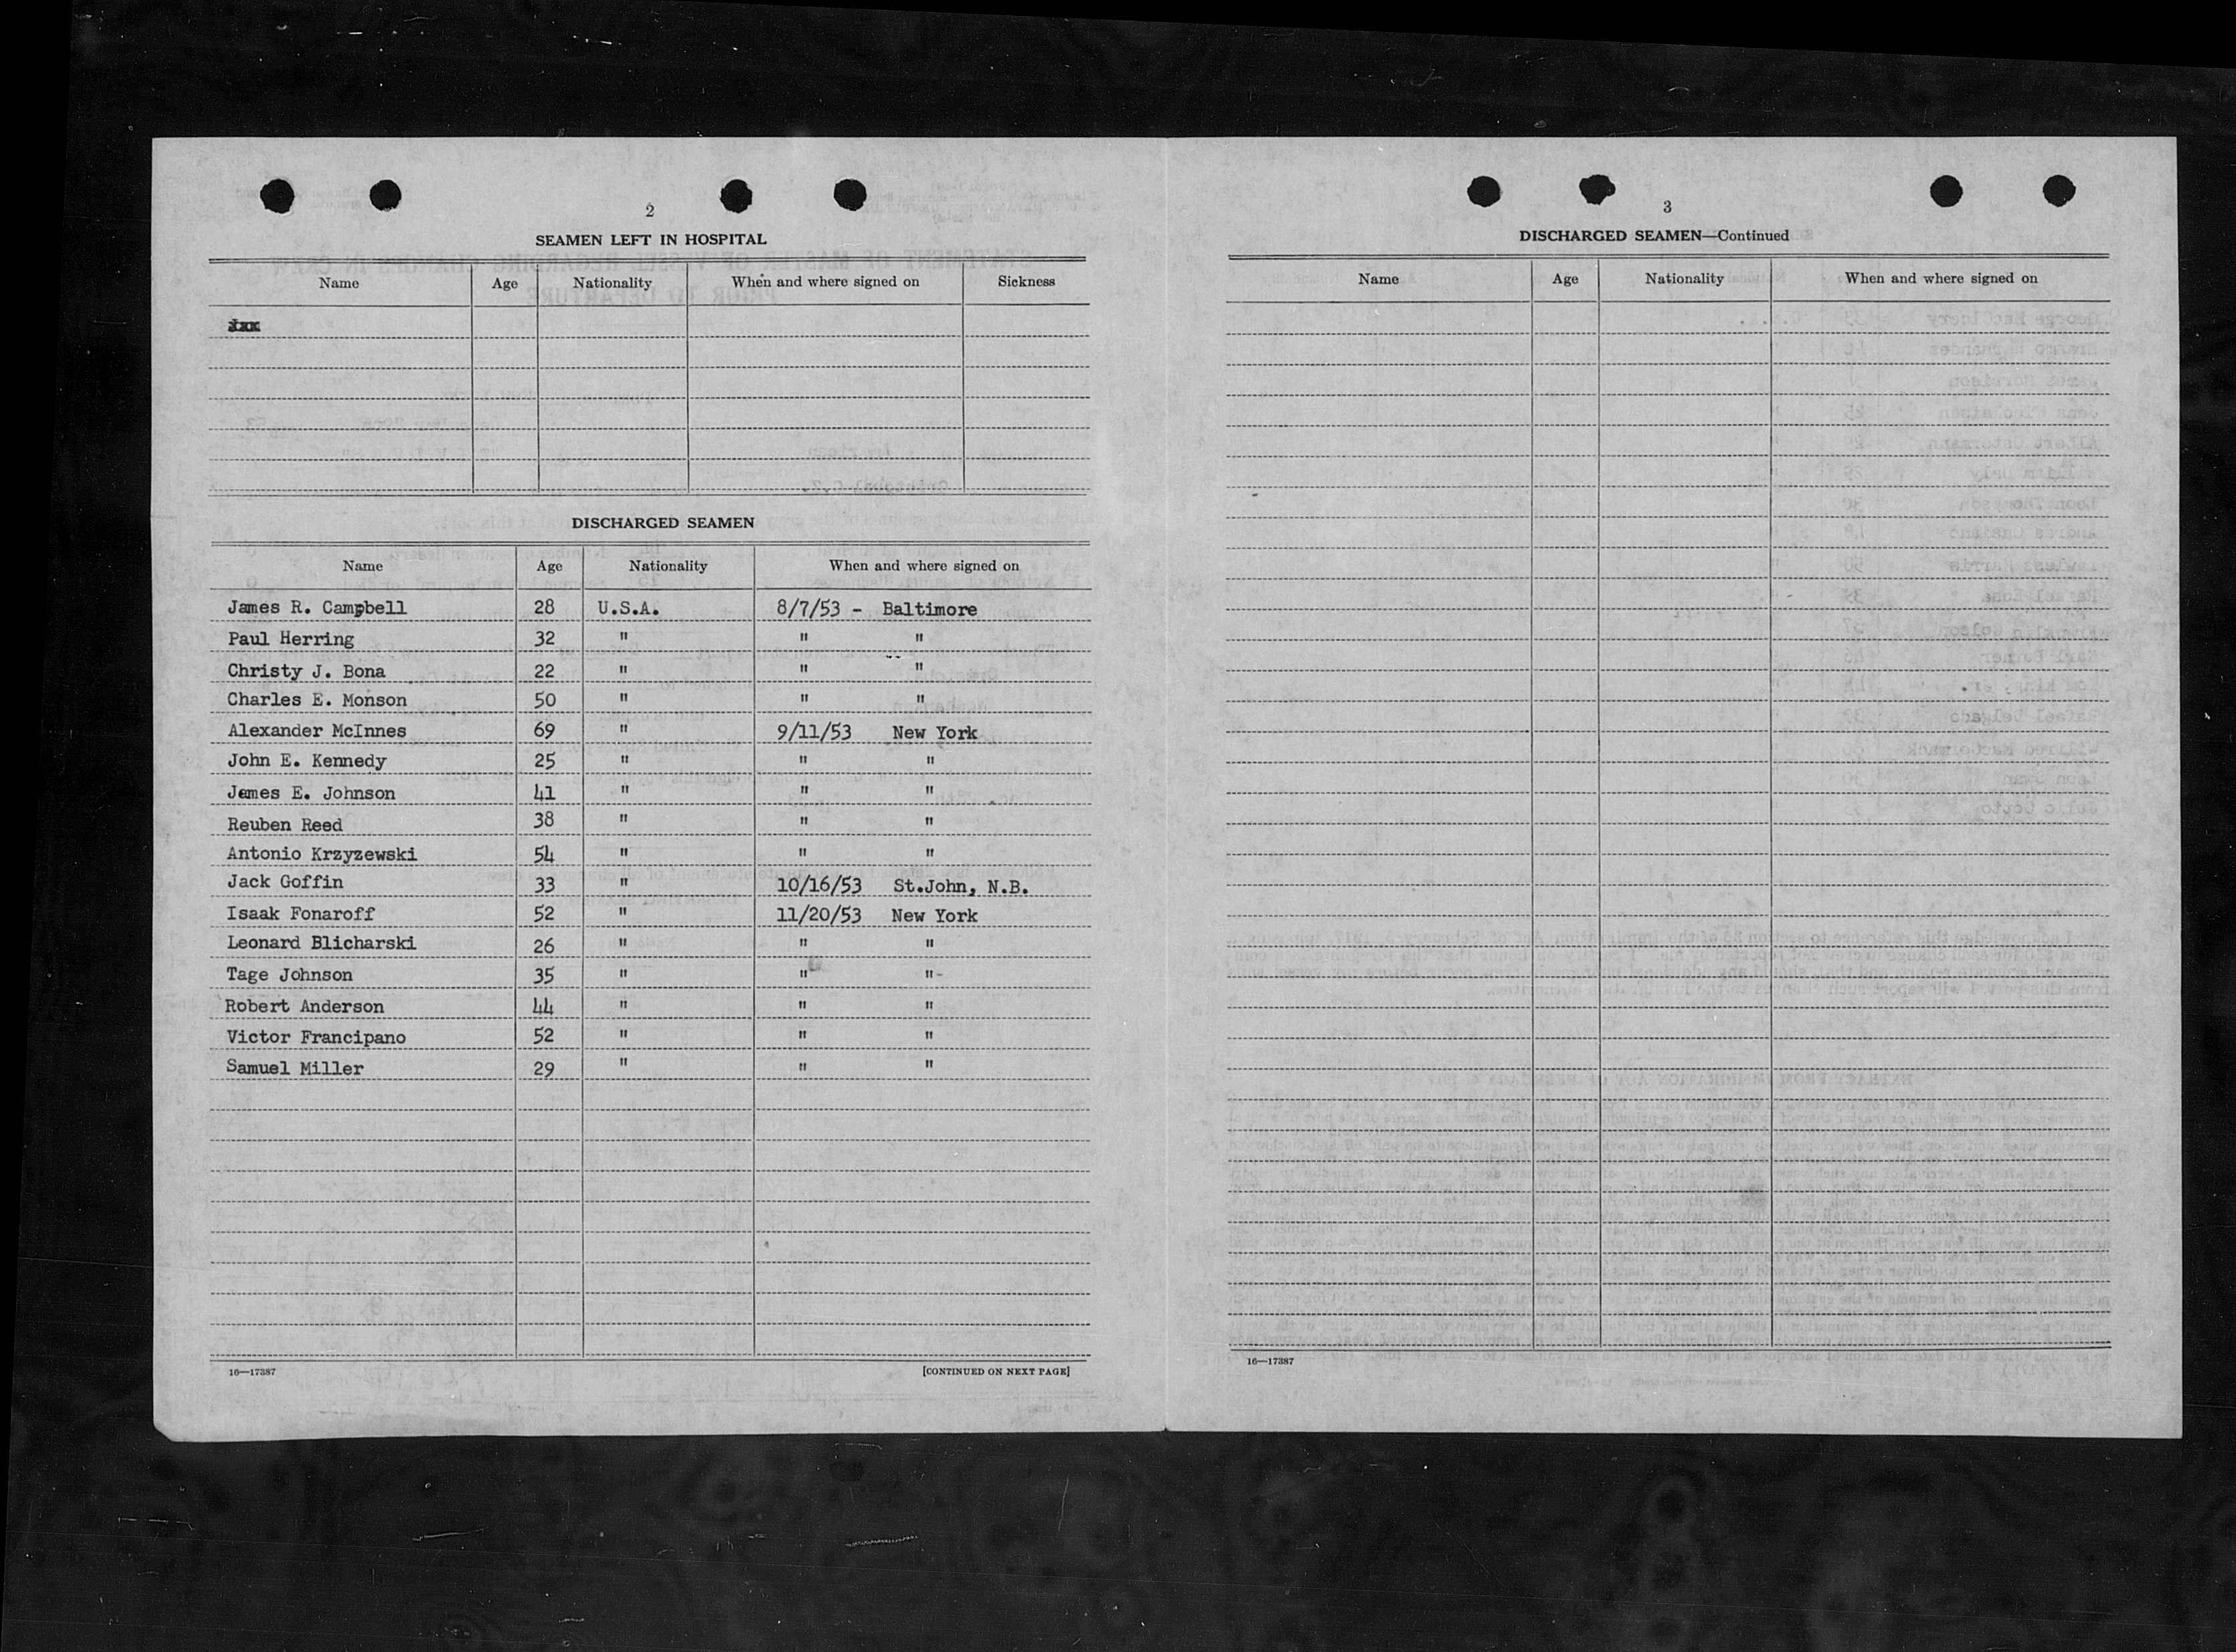 2
SEAMEN LEFT IN HOSPITAL
Name Age Nationality When and where signed on Sickness
DISCHARGED SEAMEN
Name Age Nationality When and where signed on
James R. Campbell 28 U.S.A. 8/7/53 - Baltimore
Paul Herring 32 " " "
Christy J. Bona 22 " " "
Charles E. Monson 50 " " "
Alexander McInnes 69 " 9/11/53 New York
John E. Kennedy 25 " " "
James E. Johnson 41 " " "
Reuben Reed 38 " " "
Antonio Krzyzewski 54 " " "
Jack Goffin 33 " 10/16/53 St.John, N.B.
Isaak Fonaroff 52 " 11/20/53 New York
Leonard Blicharski 26 " " "
Tage Johnson 35 " " "
Robert Anderson 44 " " "
Victor Francipano 52 " " "
Samuel Miller 29 " " "
16—17387 [CONTINUED ON NEXT PAGE]
3
DISCHARGED SEAMEN—Continued
Name Age Nationality When and where signed on
16—17387